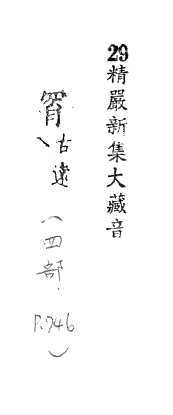 29精嚴新集大藏音
、古遠（四部 P.746）